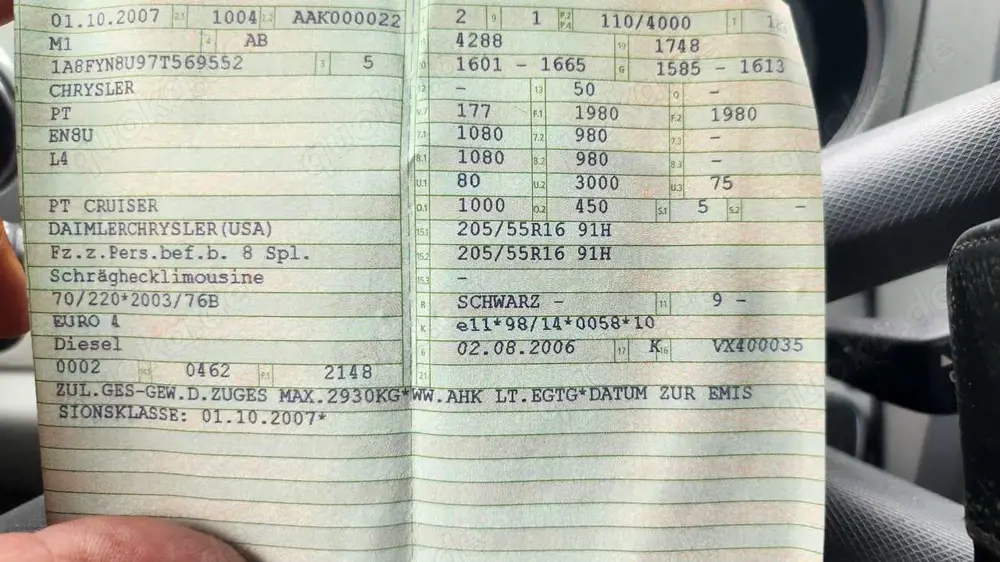 01.10.2007 2.1 1004 2.2 AAK000022
M1 4 AB
1A8FYN8U97T569552 3 5
CHRYSLER
PT
EN8U
L4
PT CRUISER
DAIMLERCHRYSLER(USA)
Fz.z.Pers.bef.b. 8 Spl.
Schräghecklimousine
70/220*2003/76B
EURO 4
Diesel
0002 0462 P.1 2148
2 9 1 P.2 P.4 110/4000 T
4288 19 1748
1601 - 1665 G 1585 - 1613
- 13 50 Q -
177 F.1 1980 F.2 1980
7.1 1080 7.2 980 7.3 -
8.1 1080 8.2 980 8.3 -
U.1 80 U.2 3000 U.3 75
O.1 1000 O.2 450 S.1 5 S.2 -
15.1 205/55R16 91H
15.2 205/55R16 91H
15.3 -
R SCHWARZ - 11 9 -
K e11*98/14*0058*10
6 02.08.2006 17 K 16 VX400035
21
ZUL.GES-GEW.D.ZUGES MAX.2930KG*WW.AHK LT.EGTG*DATUM ZUR EMIS
SIONSKLASSE: 01.10.2007*